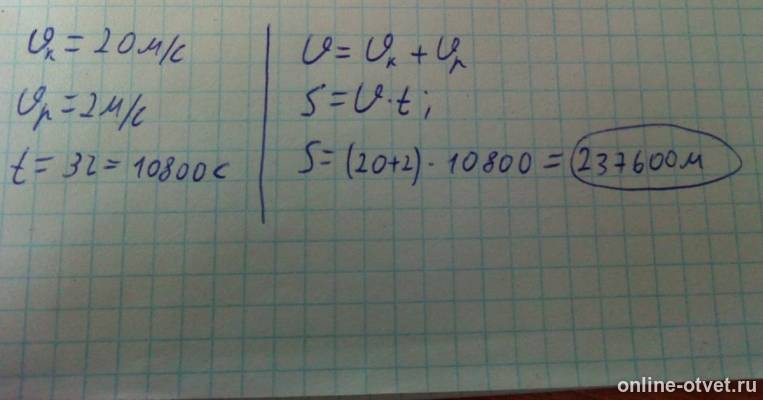 υк = 20 м/с
υр = 2 м/с
t = 3г = 10800 с
υ = υк + υр
S = υ · t;
S = (20+2) · 10800 = 237600 м
online-otvet.ru